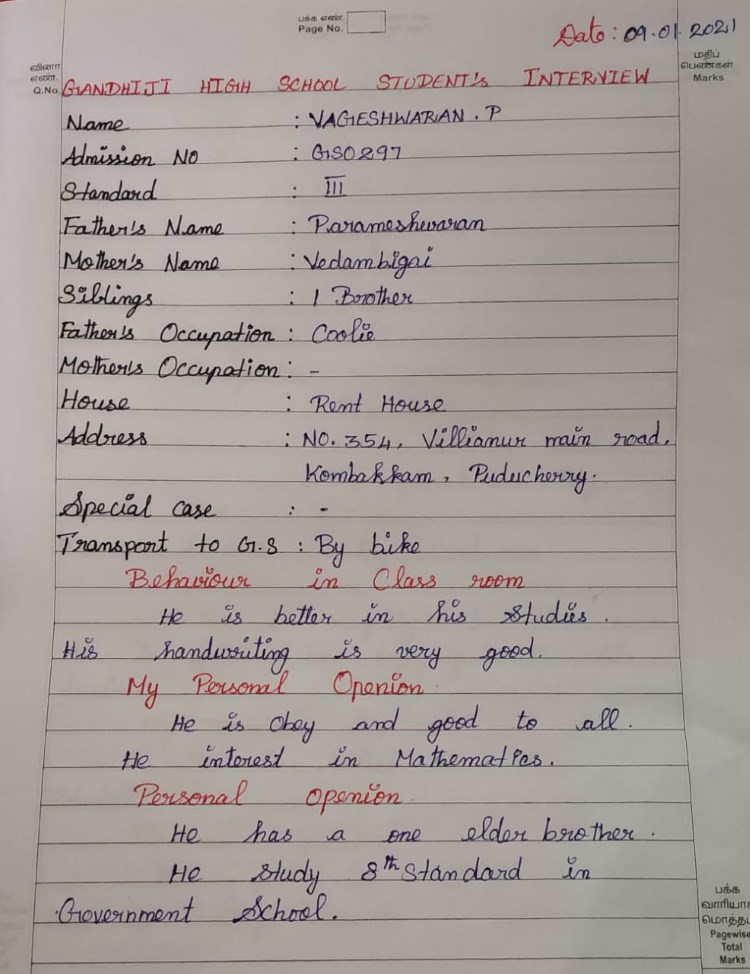 பக்க எண்.
Page No.
Date: 09.01.2021
வினா எண்.
Q.No.
மதிப் பெண்கள்
Marks
GANDHIJI HIGH SCHOOL STUDENT'S INTERVIEW
Name : VAGESHWARAN . P
Admission NO : GS0297
Standard : III
Father's Name : Parameshwaran
Mother's Name : Vedambigai
Siblings : 1 Borother
Father's Occupation : Coolie
Mother's Occupation : -
House : Rent House
Address : NO. 354, Villianur main road,
Kombakkam, Puducherry.
Special case : -
Transport to G.S : By bike
Behaviour in Class room
He is better in his studies.
His handwriting is very good.
My Personal Openion
He is Obey and good to all.
He interest in Mathematics.
Personal Openion
He has a one elder brother.
He study 8th Standard in
Government School.
பக்க
மொத்த
Pagewise
Total
Marks